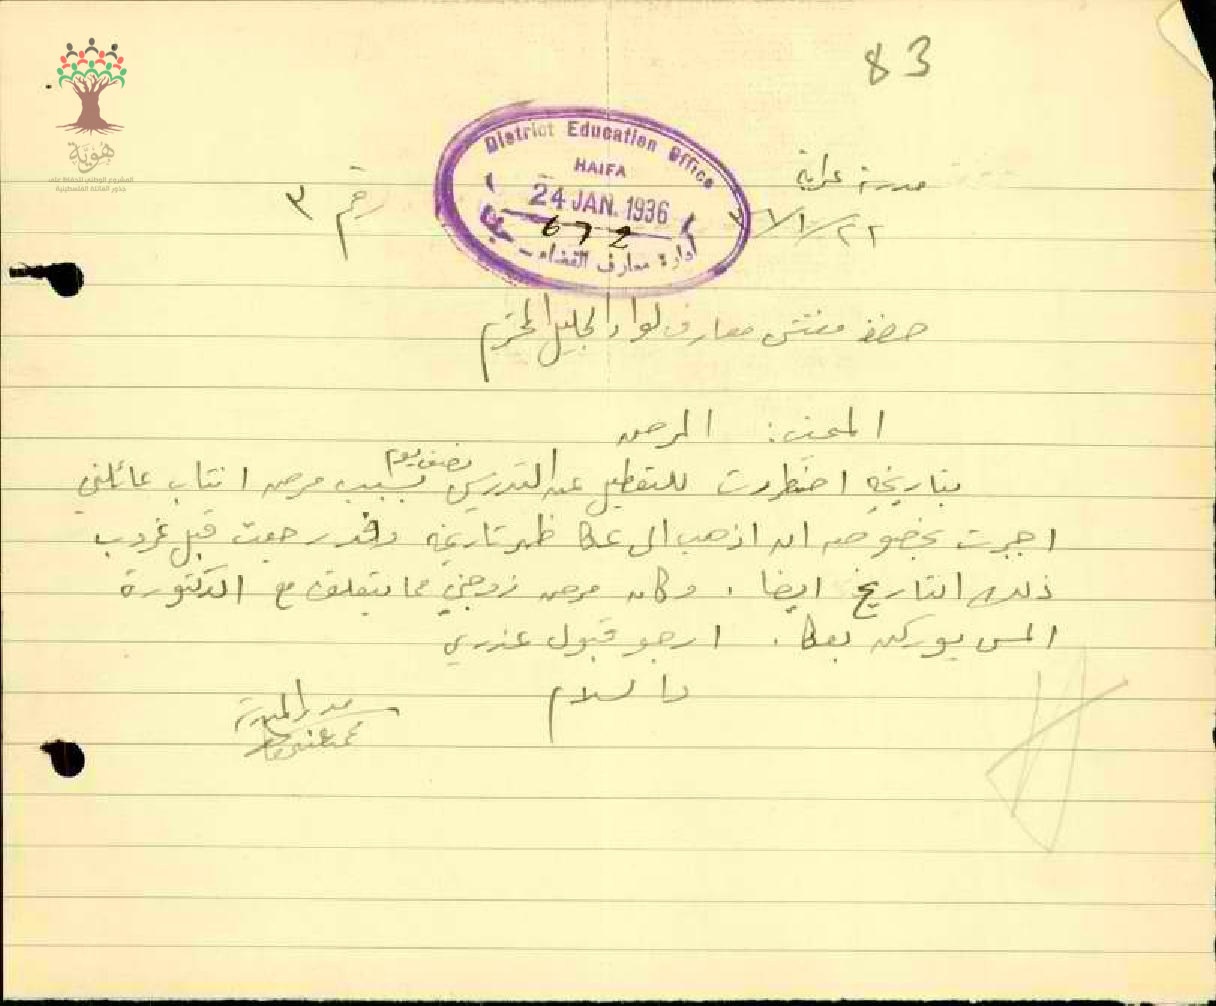 83
هوية
المشروع الوطني للحفاظ على
جذور العائلة الفلسطينية
District Education Office
HAIFA
24 JAN. 1936
672
ادارة معارف القضاء - حيفا
مدرسة عرابة
٢٢/١/
رقم ٣
حضرة مفتش معارف لواء الجليل المحترم
المبحث: المرض
بتاريخه اضطررت للتعطيل عن التدريس نصف يوم بسبب مرض انتاب عائلتي
اجبرت بخصوصه ان اذهب الى عكا ظهر تاريخه وقد رجعت قبل غروب
ذلك التاريخ ايضا . وكان مرض زوجتي مما يتعلق مع الدكتورة
المس بوركن بعكا . ارجو قبول عذري
والسلام
مدير المدرسة